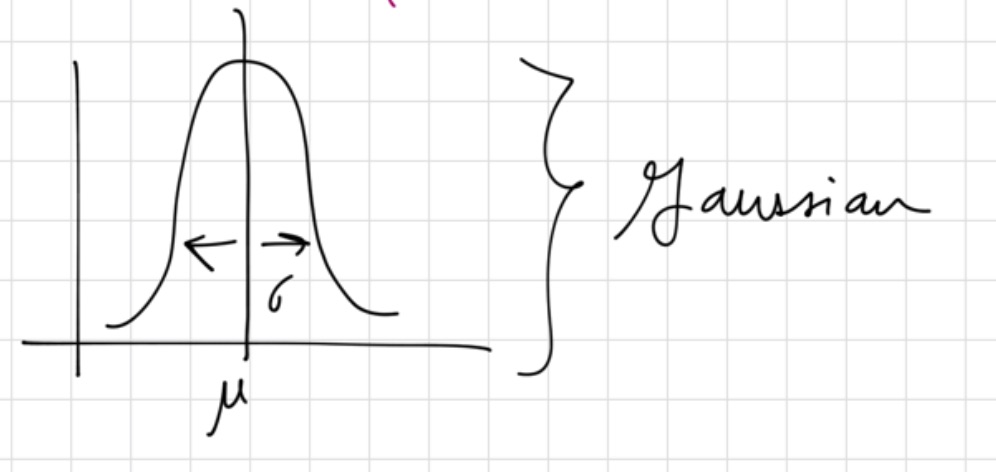 Gaussian
σ
μ